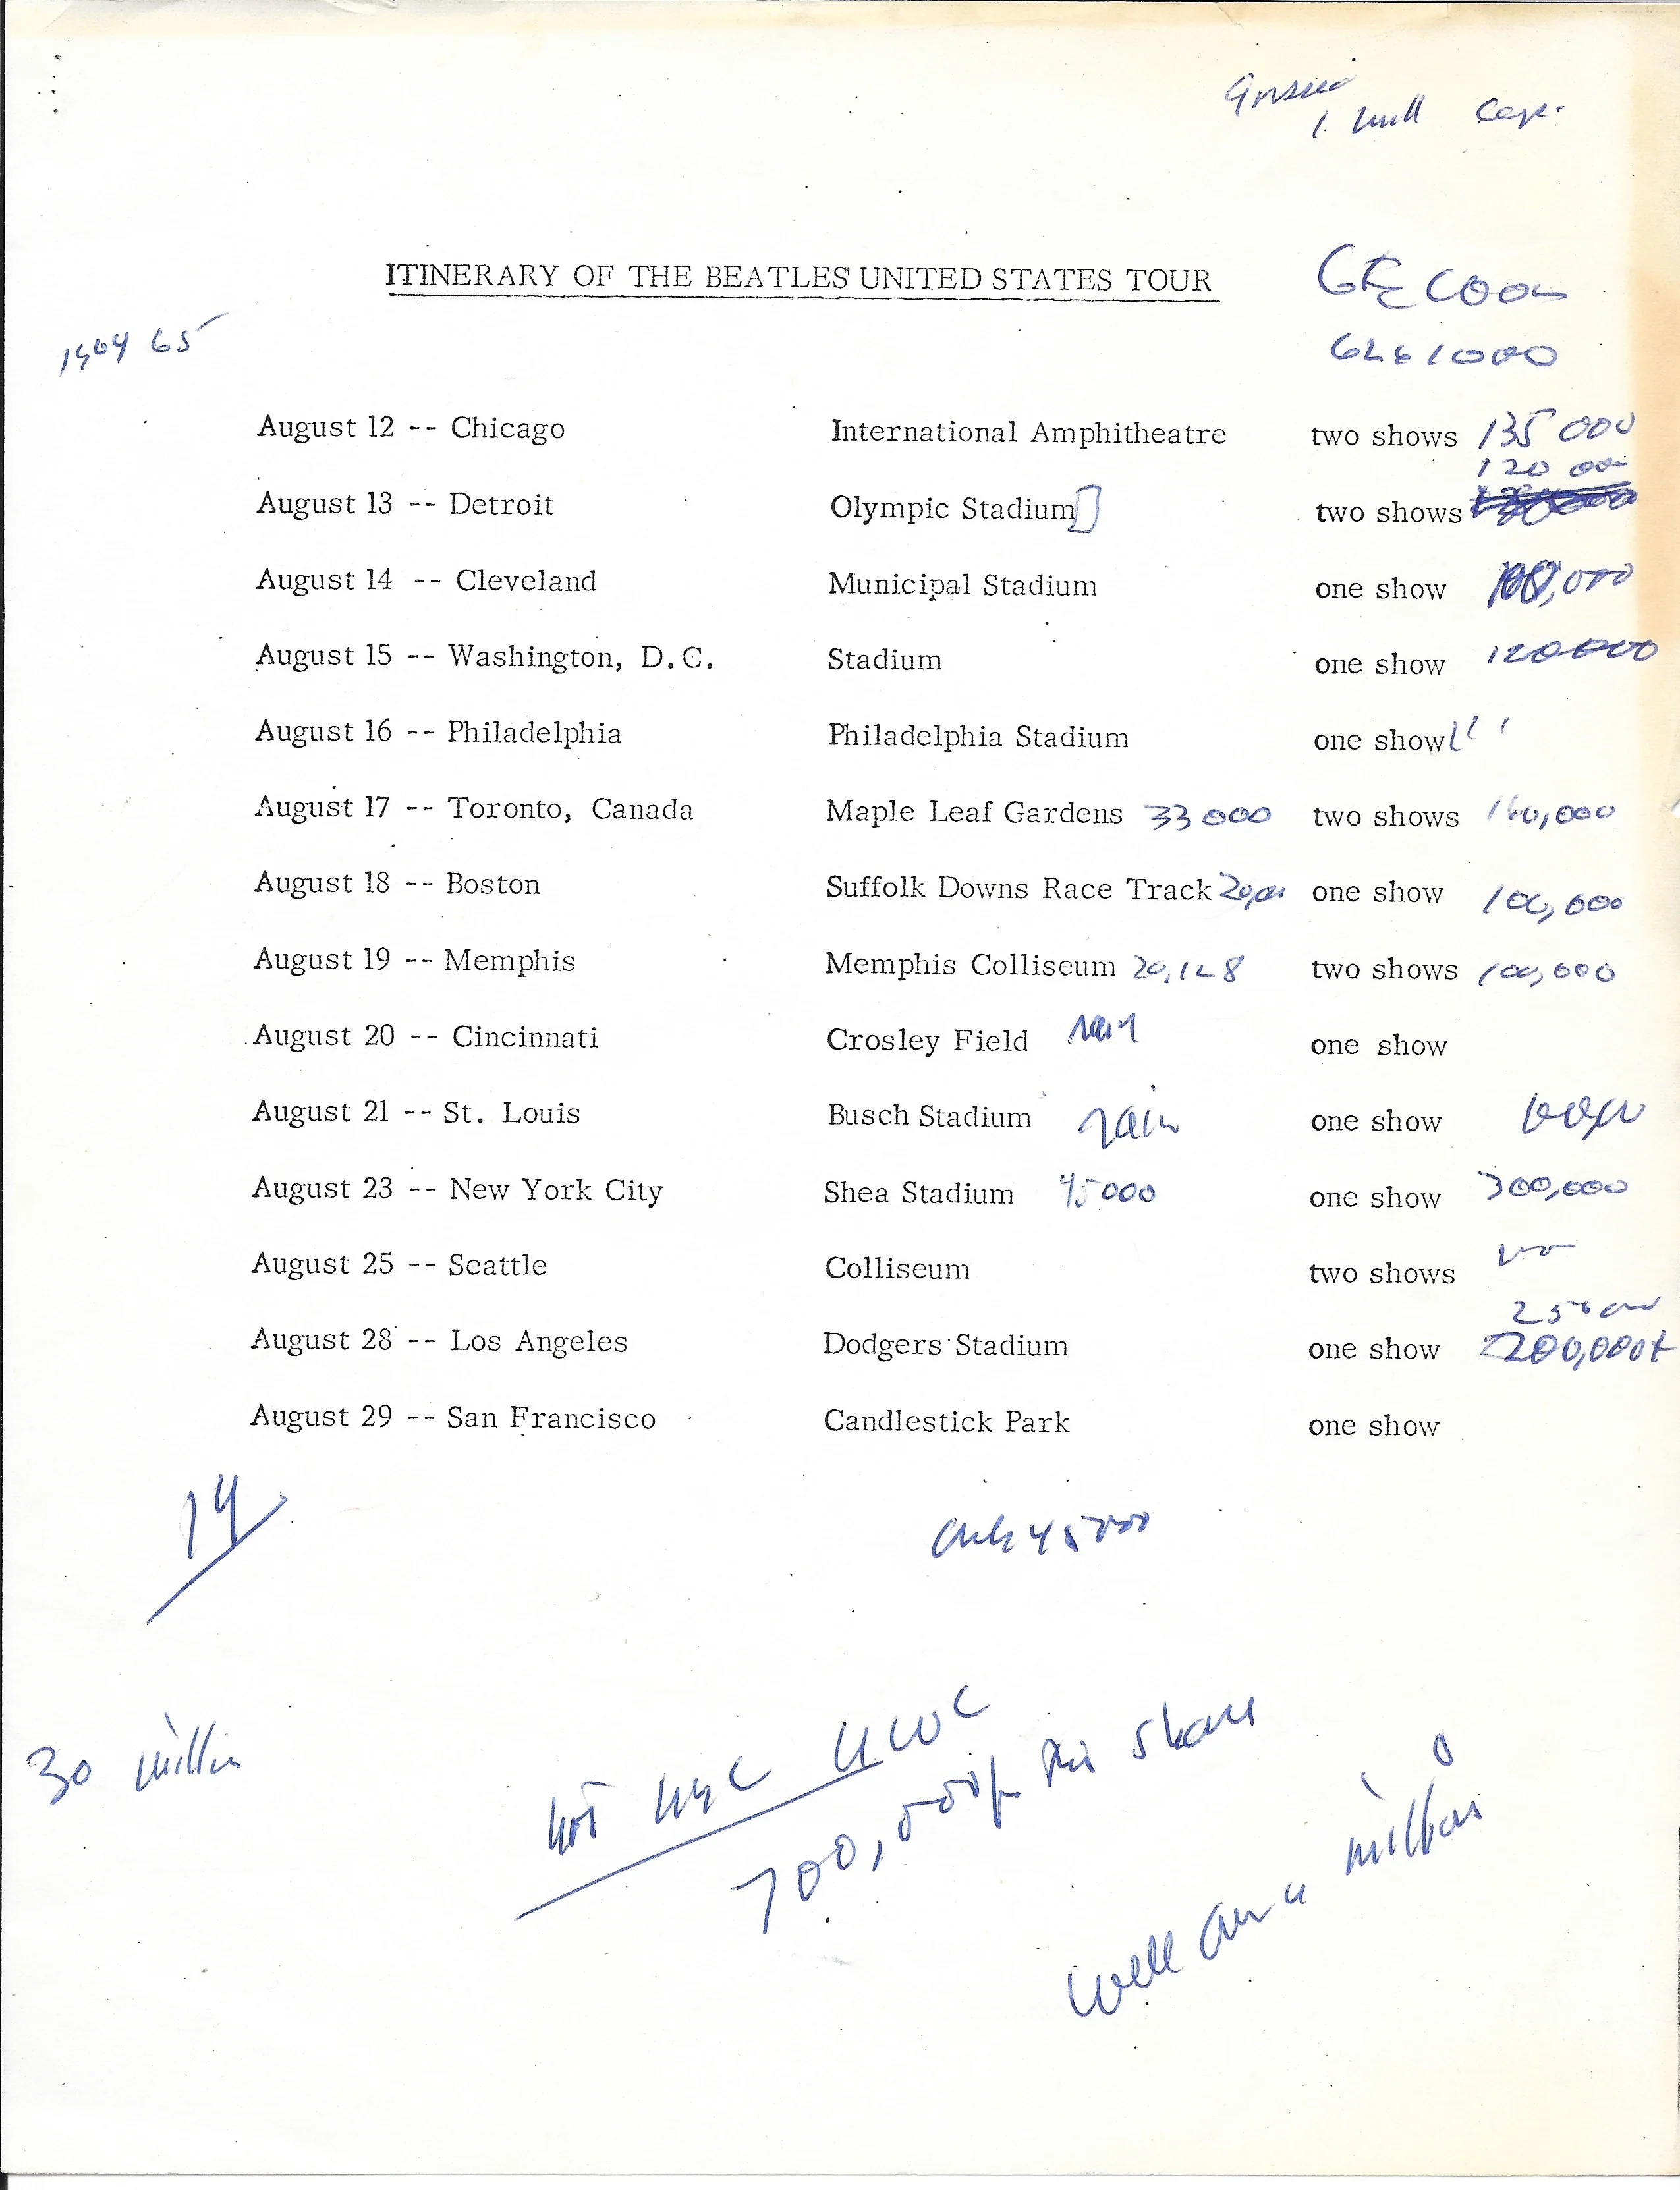 1 mill
ITINERARY OF THE BEATLES' UNITED STATES TOUR
1964 65
August 12 -- Chicago International Amphitheatre two shows 135 000
120 000
August 13 -- Detroit Olympic Stadium two shows
August 14 -- Cleveland Municipal Stadium one show
August 15 -- Washington, D.C. Stadium one show 120000
August 16 -- Philadelphia Philadelphia Stadium one show
August 17 -- Toronto, Canada Maple Leaf Gardens 33 000 two shows 140,000
August 18 -- Boston Suffolk Downs Race Track one show 100,000
August 19 -- Memphis Memphis Colliseum 20,128 two shows 100,000
August 20 -- Cincinnati Crosley Field rain one show
August 21 -- St. Louis Busch Stadium rain one show
August 23 -- New York City Shea Stadium 45000 one show 300,000
August 25 -- Seattle Colliseum two shows
August 28 -- Los Angeles Dodgers Stadium one show 200,000+
August 29 -- San Francisco Candlestick Park one show
14
only 45000
30 million
not
700,000 for this share
well over a million